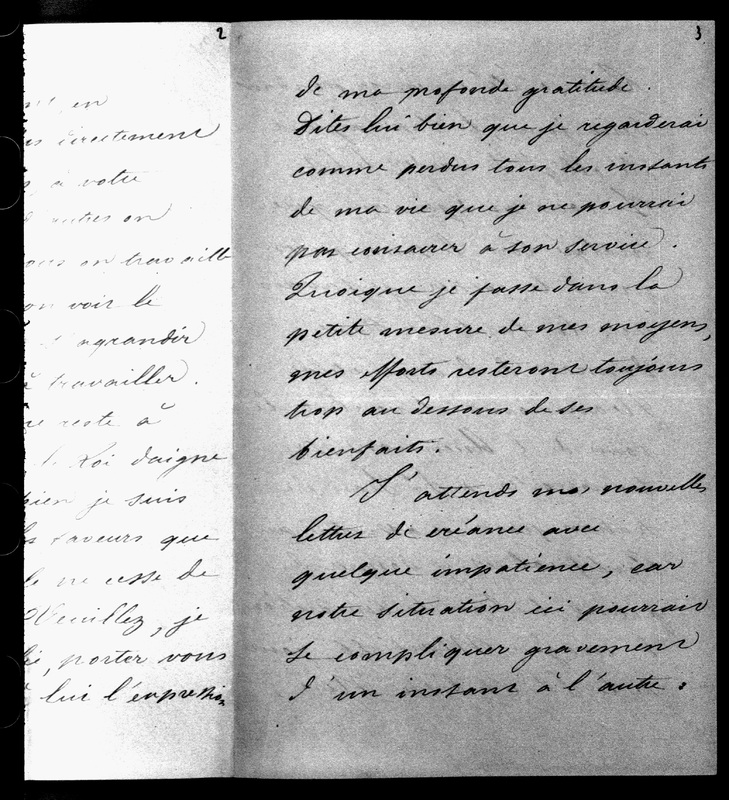 2
en
directement
à votre
autres on
on travaille
voir le
agrandir
à travailler.
reste à
le Roi daigne
bien je suis
faveurs que
ne cesse de
Veuillez, je
porter vous
lui l'expression
3
de ma profonde gratitude.
Dites lui bien que je regarderai
comme perdus tous les instants
de ma vie que je ne pourrai
pas consacrer à son service.
Quoique je fasse dans la
petite mesure de mes moyens,
mes efforts resteront toujours
trop au dessous de ses
bienfaits.
J'attends mes nouvelles
lettres de créance avec
quelque impatience, car
notre situation ici pourrait
se compliquer gravement
d'un instant à l'autre: